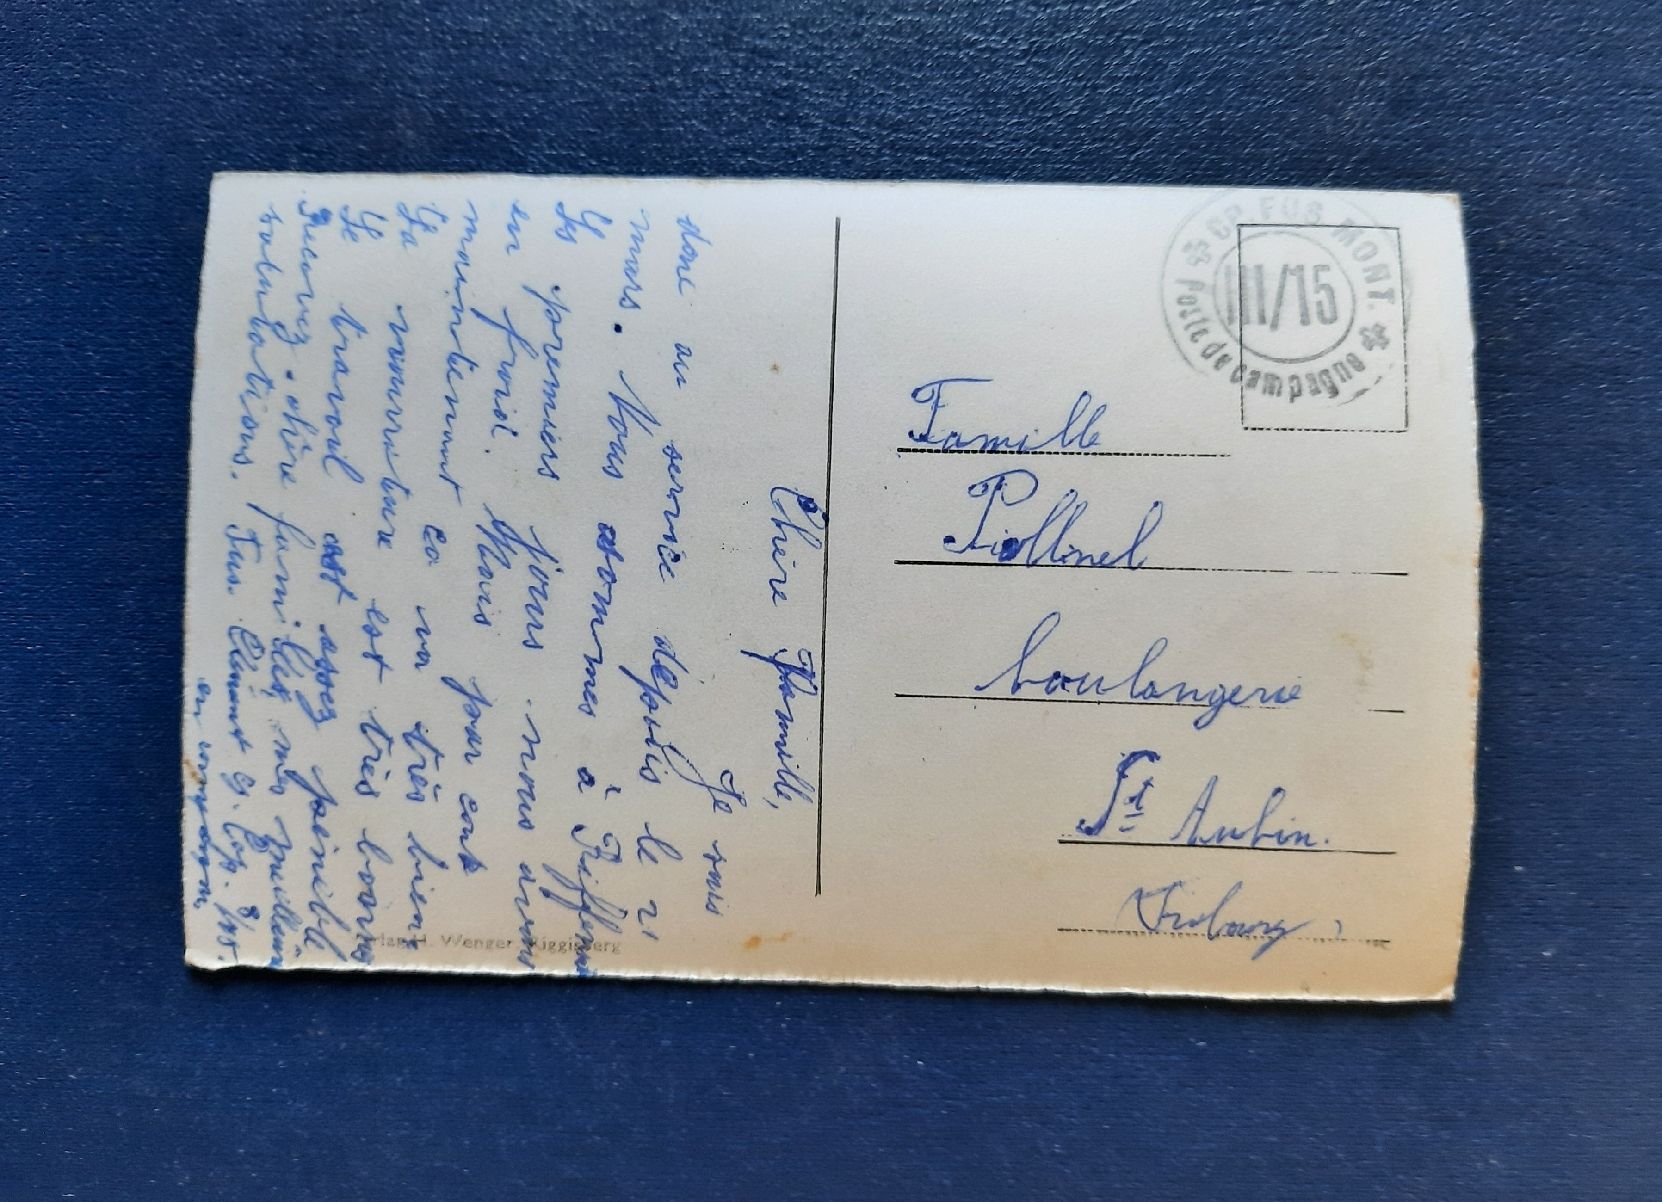 Chère Famille,
Je suis
donc au service depuis le 21
mars. Nous sommes à Riffenm
Les premiers jours nous avons
eu froid. Mais pour cont
maintenant ça va très bien.
La nourriture est très bonne
Le travail est assez pénible
Recevez chère famille mes meilleures
salutations. Fus. Clément Cp. 8/15.
en campagne
CP. FUS. MONT.
III/15
Poste de campagne
Famille
Pollinel
boulangerie
St Aubin.
Fribourg
Verlag H. Wenger, Riggisberg